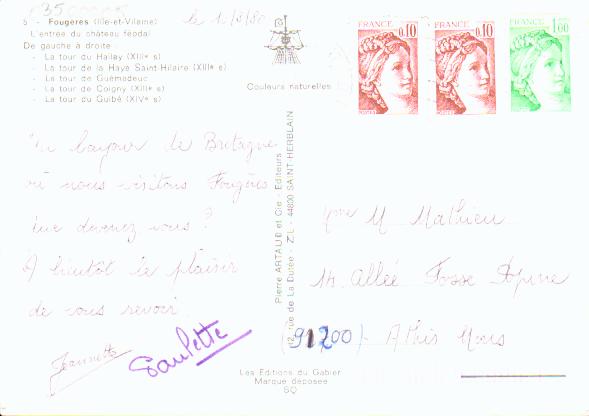 5 - Fougères (Ille-et-Vilaine)
L'entrée du château féodal
De gauche à droite :
- La tour du Hallay (XIIIe s)
- La tour de la Haye Saint-Hilaire (XIIIe s)
- La tour de Guémadeuc
- La tour de Coigny (XIIIe s)
- La tour du Guibé (XIVe s)
Couleurs naturelles
FRANCE
0,10
FRANCE
0,10
FRANCE
1,00
bonjour de Bretagne
nous visitons Fougères
devenez vous ?
A bientôt le plaisir
de vous revoir.
Jeannette
Paulette
Pierre ARTAUD et Cie - Editeurs
12, rue de La Dutée - Z.I. - 44800 SAINT-HERBLAIN
Mme M Mathieu
14 Allée Fosse
(91200) - Athis Mons
Les Editions du Gabier
Marque déposée